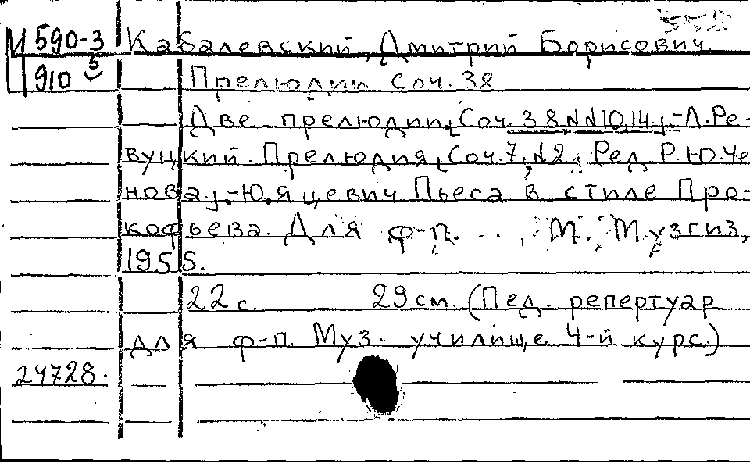 И 590-3 Кабалевский, Дмитрий Борисович
910 5 Прелюдии Соч. 38
Две прелюдии, Соч. 38 NN10,14,-Л. Ре-
вуцкий. Прелюдия, Соч. 7, N2, Ред. Р.Ю. Че
нова,-Ю. Яцевич Пьеса в стиле Про-
кофьева. Для ф-п. .., М. Музгиз,
1955.
22 с. 29 см. (Пед. репертуар
для ф-п. Муз. училище 4-й курс.)
24728.